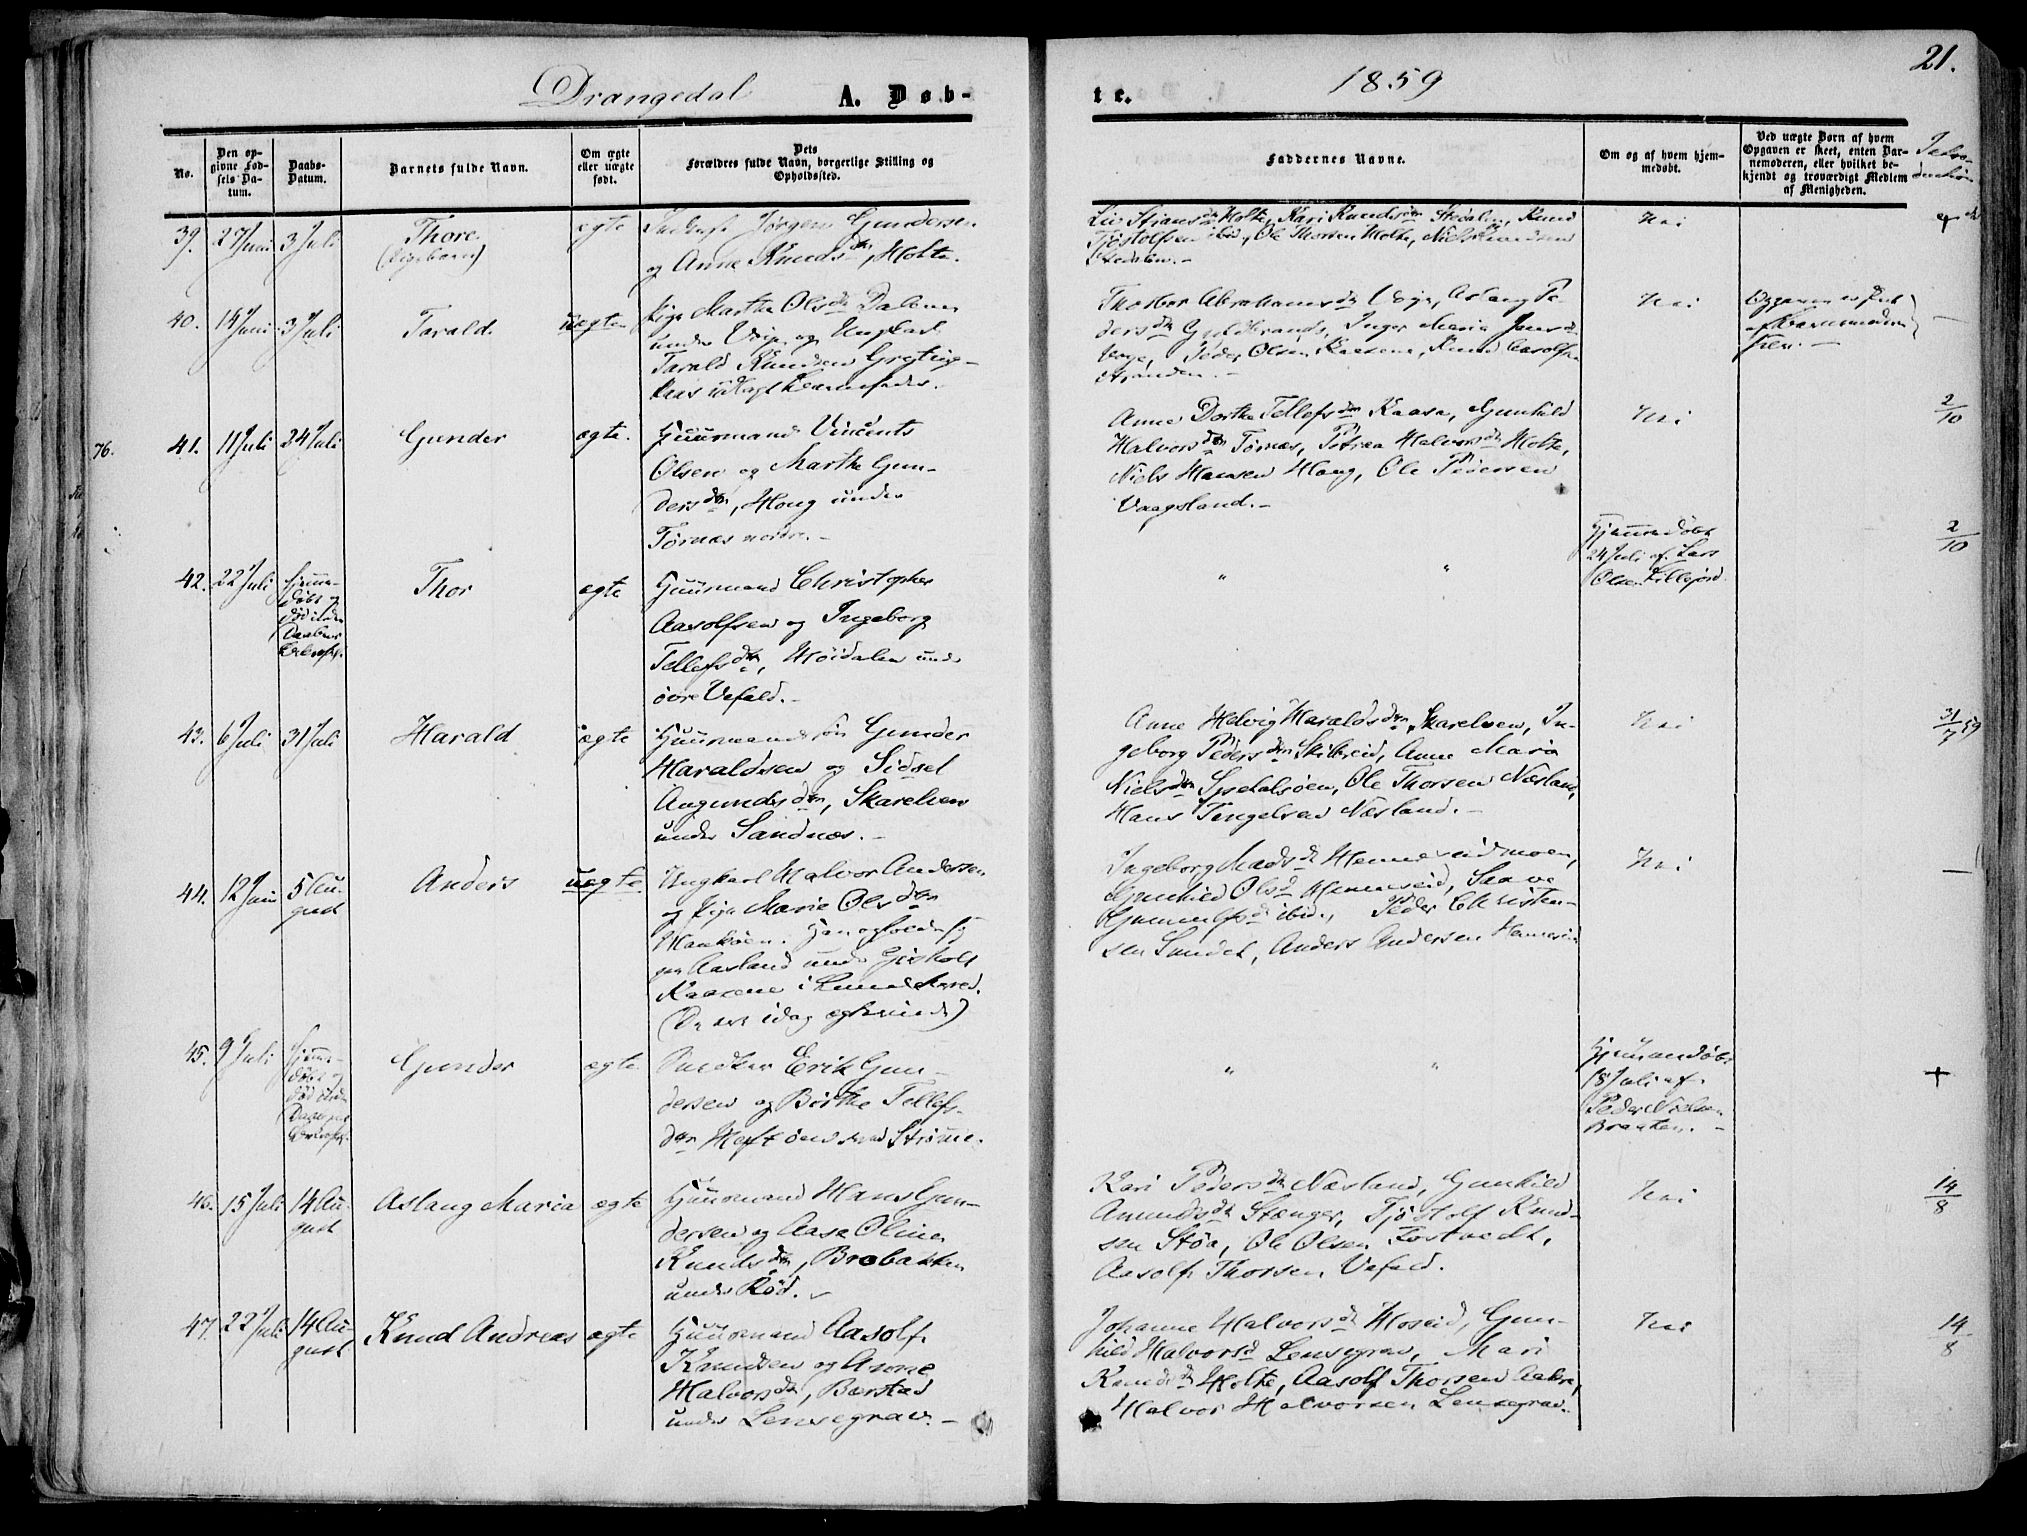 Drangedal
A. Døb-
te.
1859
21.
No.
Den op-
givne Fød-
sels Da-
tum.
Daabs-
Datum.
Barnets fulde Navn.
Om ægte
eller uægte
født.
Dets
Forældres fulde Navn, borgerlige Stilling og
Opholdssted.
Faddernes Navne.
Om og af hvem hjem-
medøbt.
Ved uægte Børn af hvem
Opgaven er skeet, enten Bar-
nemoderen, eller hvilket be-
kjendt og troværdigt Medlem
af Menigheden.
39.
27 Juni
3 Juli
Thore
ægte
Jørgen Gundersen
og Anne Knudsdtr, Holte.
Liv Stiansdtr Holte, Kari Knudsdtr Stedalen, Knud
Tjøstolfsen ibid., Ole Thorsen Holte, Niels
Stedalen.
Nei
40.
14 Juni
3 Juli
Tarald.
uægte
Pige Marthe Olsdtr Dalene
under Voje og Ungkarl
Tarald Knudsen
udlagt Barnefader.
Thorbor Abrahamsdtr Voje, Aslaug Pe-
dersdtr Inger Maria Jensdtr
Voje, Peder Olsen Kaasene, Knud Aasolfsen
Stranden.
Nei
Opgaven er
af Barnemoderen
76.
41.
11 Juli
24 Juli
Gunder
ægte.
Huusmand Vincents
Olsen og Marthe Gun-
dersdtr, Houg under
Tørnæs nordre.
Anne Dorthe Tellefsdtr Kaasa, Gunhild
Halvorsdtr Tørnæs, Petrea Halvorsdtr Holte,
Niels Hansen Houg, Ole Pedersen
Vaagsland.
Nei
2/10
42.
22 Juli
Hjemme-
døbt og
død inden
Daabens
Bekræft.
Thor
ægte
Huusmand Christopher
Aasolfsen og Ingeborg
Tellefsdtr, Høidalen under
øvre Vefald.
" "
Hjemmedøbt
24 Juli af Lars
Olsen Lillejord.
2/10
43.
6 Juli
31 Juli
Harald
ægte
Huusmand Gunder
Haraldsen og Sidsel
Augundsdtr, Skarelven
under Sandnæs.
Anne Helvig Haraldsdtr Skarelven, In-
geborg Pedersdtr Skibreid, Anne Maria
Nielsdtr Spedalsøen, Ole Thorsen Næsland,
Hans Tengelsen Næsland.
Nei
31/7 59
44.
12 Juni
5 Au-
gust
Anders
uægte
Ungkarl Halvor Andersen
og Pige Marie Olsdtr
Haukøen. Han opholder sig
paa Aasland under Gjeshold
Kaasene i
(De ere idag ægteviede)
Ingeborg Madsdtr Henneseidmoen,
Gunhild Olsdtr Henneseid, Saave
Gunnulfsdtr ibid., Peder Christen-
sen Sundet, Anders Andersen Henneseid
Nei
45.
9 Juli
Hjemme-
døbt og
død inden
Daabens
Bekræft.
Gunder
ægte
Erik Gun-
dersen og Birthe Tellefs-
dtr Strømme.
" "
Hjemmedøbt
18 Juli af
Peder Nielsen
Braaten.
+
46.
15 Juli
14 Au-
gust
Aslaug Maria
ægte
Huusmand Hans Gun-
dersen og Aase Oline
Knudsdtr, Brobakken
under Rød.
Kari Pedersdtr Næsland, Gunhild
Amundsdtr Stænger, Tjøstolf Knud-
sen Støa, Ole Olsen Tostvedt,
Aasolf Thorsen Vefald.
Nei
14/8
47.
22 Juli
14 Au-
gust
Knud Andreas
ægte
Huusmand Aasolf
Knudsen og Anne
Halvorsdtr, Bærstad
under Lensegrav.
Johanne Halvorsdtr Hoseid, Gun-
hild Halvorsd Lensegrav, Mari
Knudsdtr Holte, Aasolf Thorsen
Halvor Halvorsen Lensegrav.
Nei
14/8